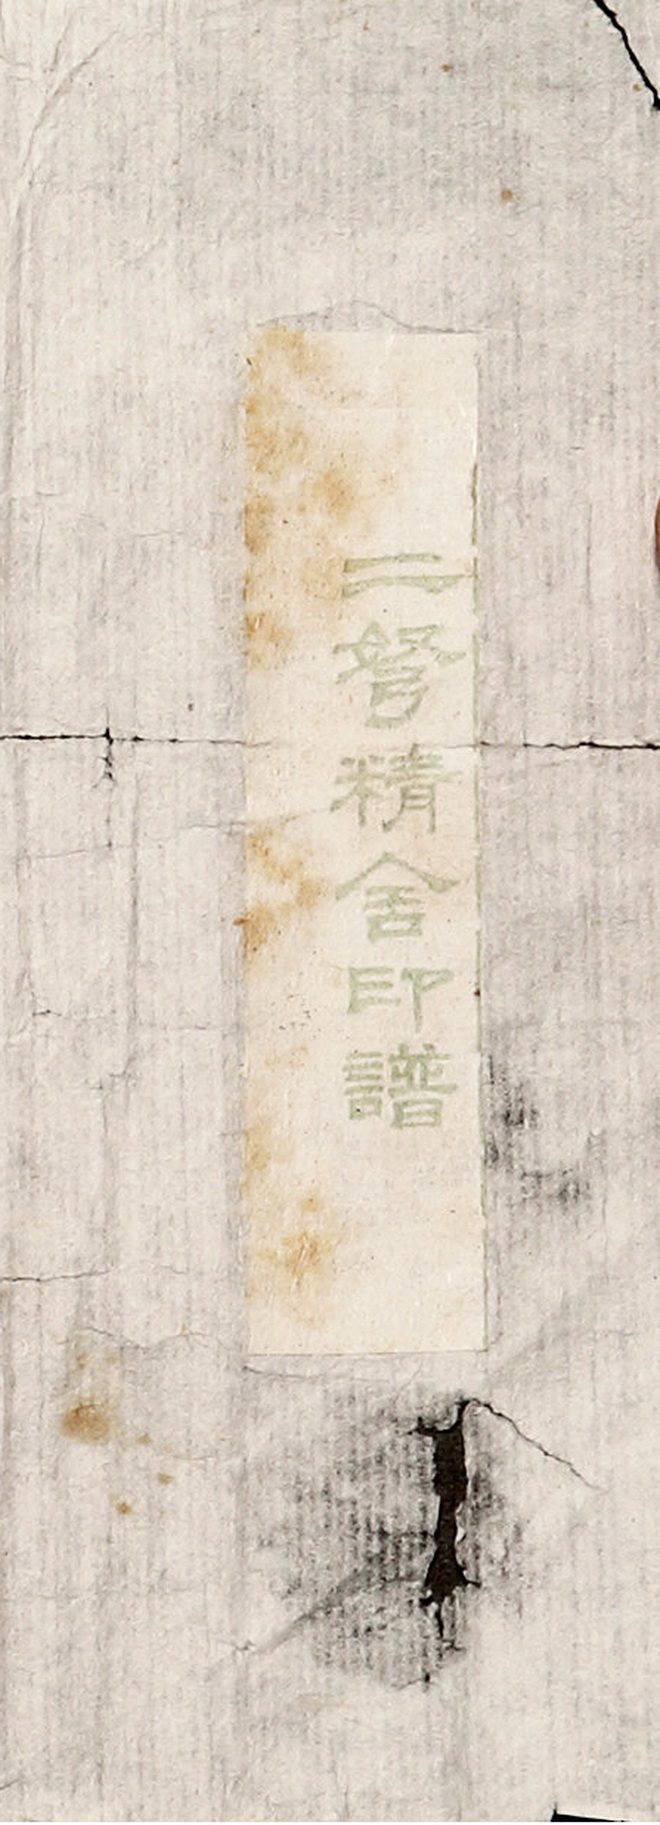 二弩精舍印譜